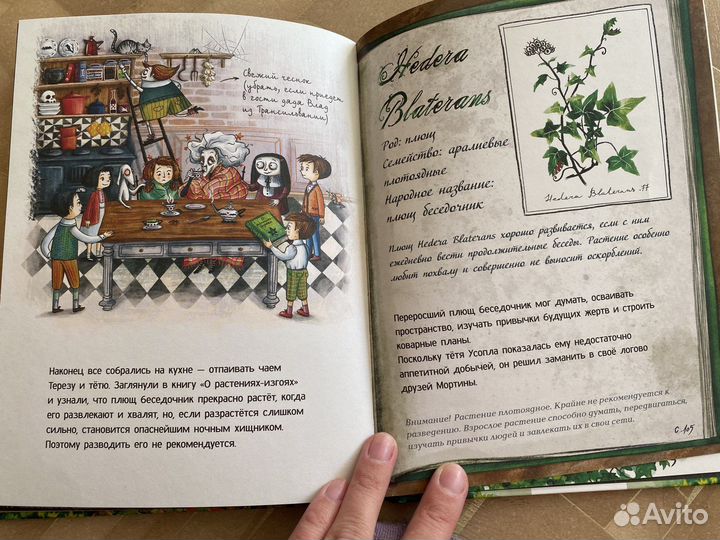 Свежий чеснок
(убрать, если приедет
в гости дядя Влад
из Трансильвании)
Наконец все собрались на кухне — отпаивать чаем
Терезу и тётю. Заглянули в книгу «О растениях-изгоях»
и узнали, что плющ беседочник прекрасно растёт, когда
его развлекают и хвалят, но, если разрастётся слишком
сильно, становится опаснейшим ночным хищником.
Поэтому разводить его не рекомендуется.
Hedera
Blaterans
Род: плющ
Семейство: аралиевые
плотоядные
Народное название:
плющ беседочник
Hedera Blaterans
Плющ Hedera Blaterans хорошо развивается, если с ним
ежедневно вести продолжительные беседы. Растение особенно
любит похвалу и совершенно не выносит оскорблений.
Переросший плющ беседочник мог думать, осваивать
пространство, изучать привычки будущих жертв и строить
коварные планы.
Поскольку тётя Усопла показалась ему недостаточно
аппетитной добычей, он решил заманить в своё логово
друзей Мортины.
Внимание! Растение плотоядное. Крайне не рекомендуется к
разведению. Взрослое растение способно думать, передвигаться,
изучать привычки людей и завлекать их в свои сети.
С. 105
Avito